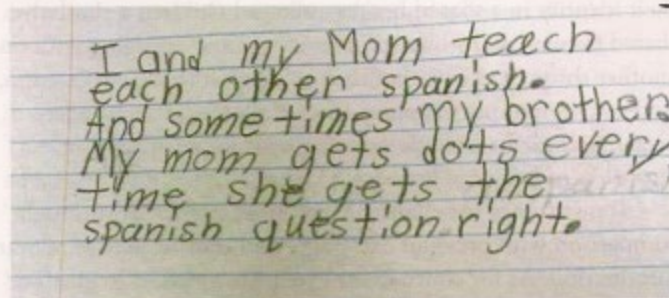 I and my Mom teach
each other spanish.
And some times my brothers
My mom gets dots every
time she gets the
spanish question right.